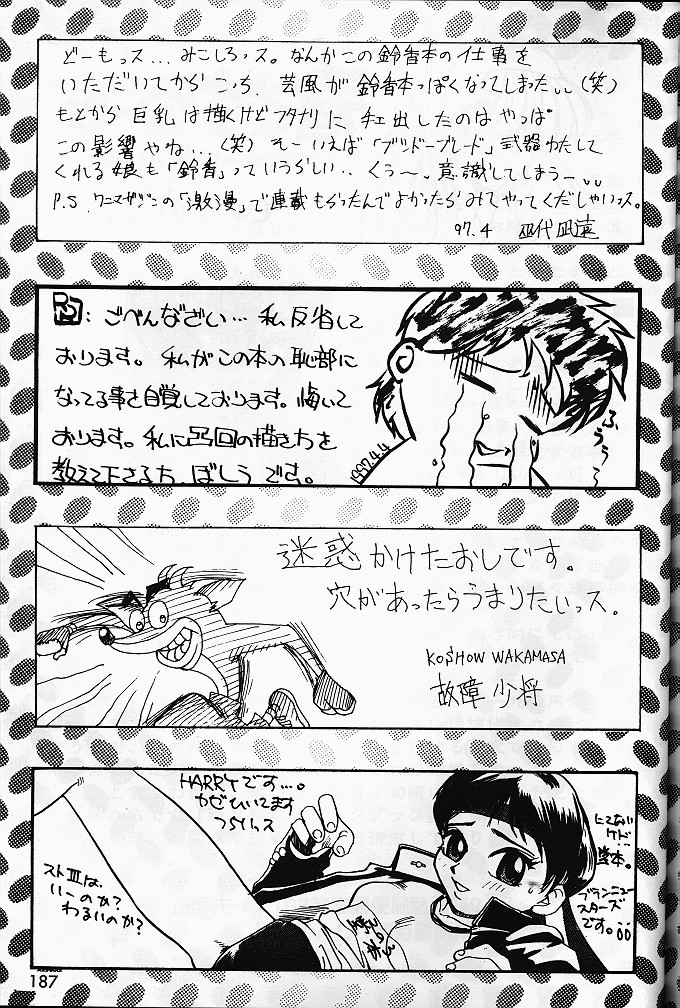 どーもっス...みこしろっス。なんかこの鈴香本の仕事を
いただいてからこっち、芸風が鈴香本っぽくなってしまった…(笑)
もとから巨乳は描くけどフタナリに手出したのはやっぱ
この影響やね...(笑) そーいえば「ブシドーブレード」武器わたして
くれる娘も「鈴香」っていうらしい.. くぅ〜、意識してしまうー…
P.S ワニマガジンの「激漫」で連載もらったんでよかったらみてやってくだしゃいっス。
97.4
ごべんなざい…私反省して
おります。私がこの本の恥部に
なってる事を自覚しております。悔いて
おります。私に凸凹の描き方を
教えて下さる方、ぼしうです。
1997.4.4
ふぅぅ〜
迷惑かけたおしです。
穴があったらうまりたいっス。
KOSHOW WAKAMASA
故障少将
HARRYです…。
かぜひいてます
つらいっス
にてない
ケド
ブランニュー
スターズ
です。
ストⅢは、
いくのか?
わるいのか?
187